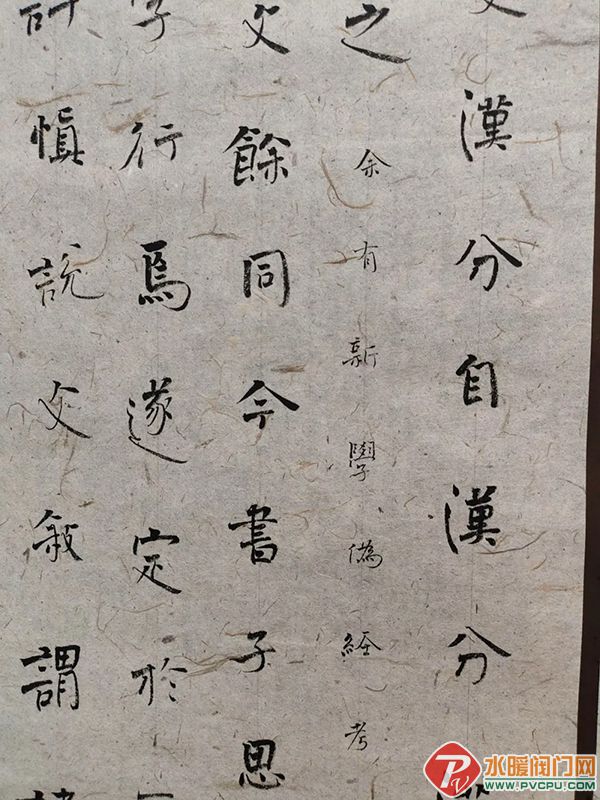 漢分自漢分
之余有新學偽經考
文餘同今書子思
字行焉遂定於
許慎說文敘謂
水暖阀门网
WWW.PVCPU.COM